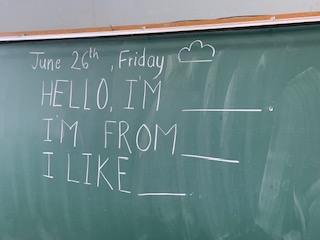 June 26th, Friday
HELLO, I'M ______.
I'M FROM ______
I LIKE ______.